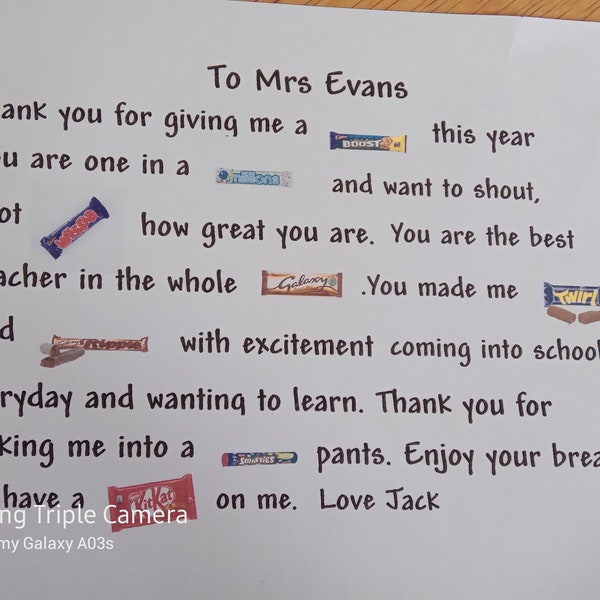 To Mrs Evans
ank you for giving me a BOOST this year
u are one in a millions and want to shout,
ot wispa how great you are. You are the best
acher in the whole Galaxy .You made me TWIRL
d Ripple with excitement coming into school
ryday and wanting to learn. Thank you for
king me into a SMARTIES pants. Enjoy your brea
have a KitKat on me. Love Jack
ng Triple Camera
my Galaxy A03s